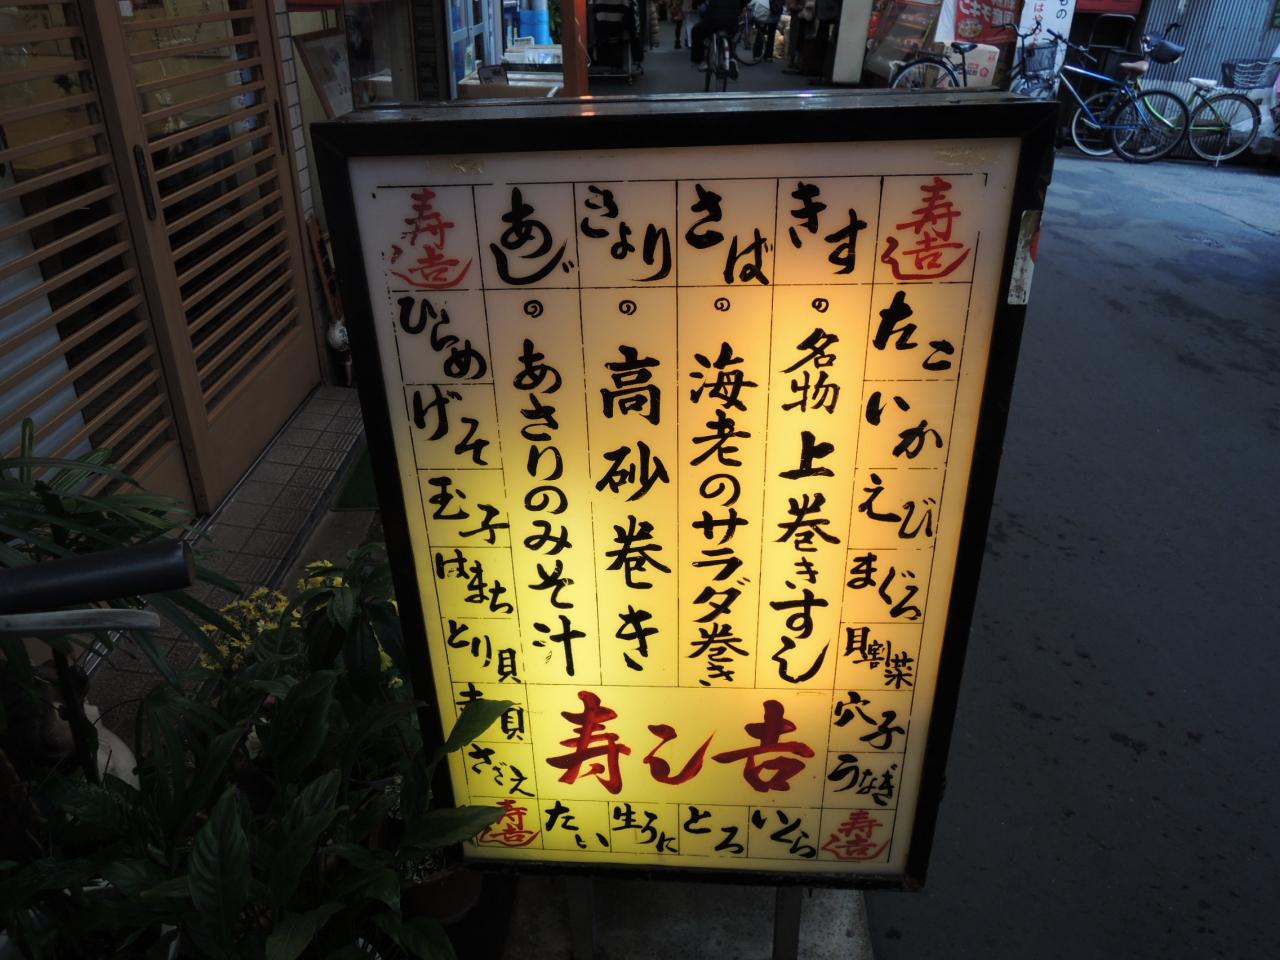 寿し吉
きす
さば
きより
あじ
寿し吉
たこ
いか
えび
まぐろ
貝割菜
穴子
うなぎ
の名物上巻きすし
の海老のサラダ巻き
の高砂巻き
のあさりのみそ汁
ひらめ
げそ
玉子
はまち
とり貝
赤貝
さざえ
寿し吉
寿し吉
いくら
とろ
生うに
たい
寿し吉